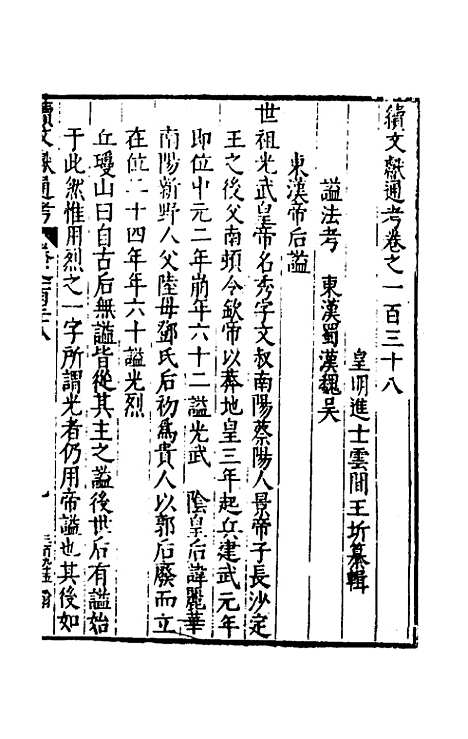 續文獻通考卷之一百三十八
皇明進士雲間王圻纂輯
諡法考 東漢蜀漢魏吳
東漢帝后諡
世祖光武皇帝名秀字文叔南陽蔡陽人景帝子長沙定
王之後父南頓令欽帝以莽地皇三年起兵建武元年
即位中元二年崩年六十二諡光武 陰皇后諱麗華
南陽新野人父陸母鄧氏后初爲貴人以郭后廢而立
在位二十四年年六十諡光烈
丘瓊山曰自古后無諡皆從其主之諡後世后有諡始
于此然惟用烈之一字所謂光者仍用帝諡也其後如
續文獻通考 卷之一百三十八